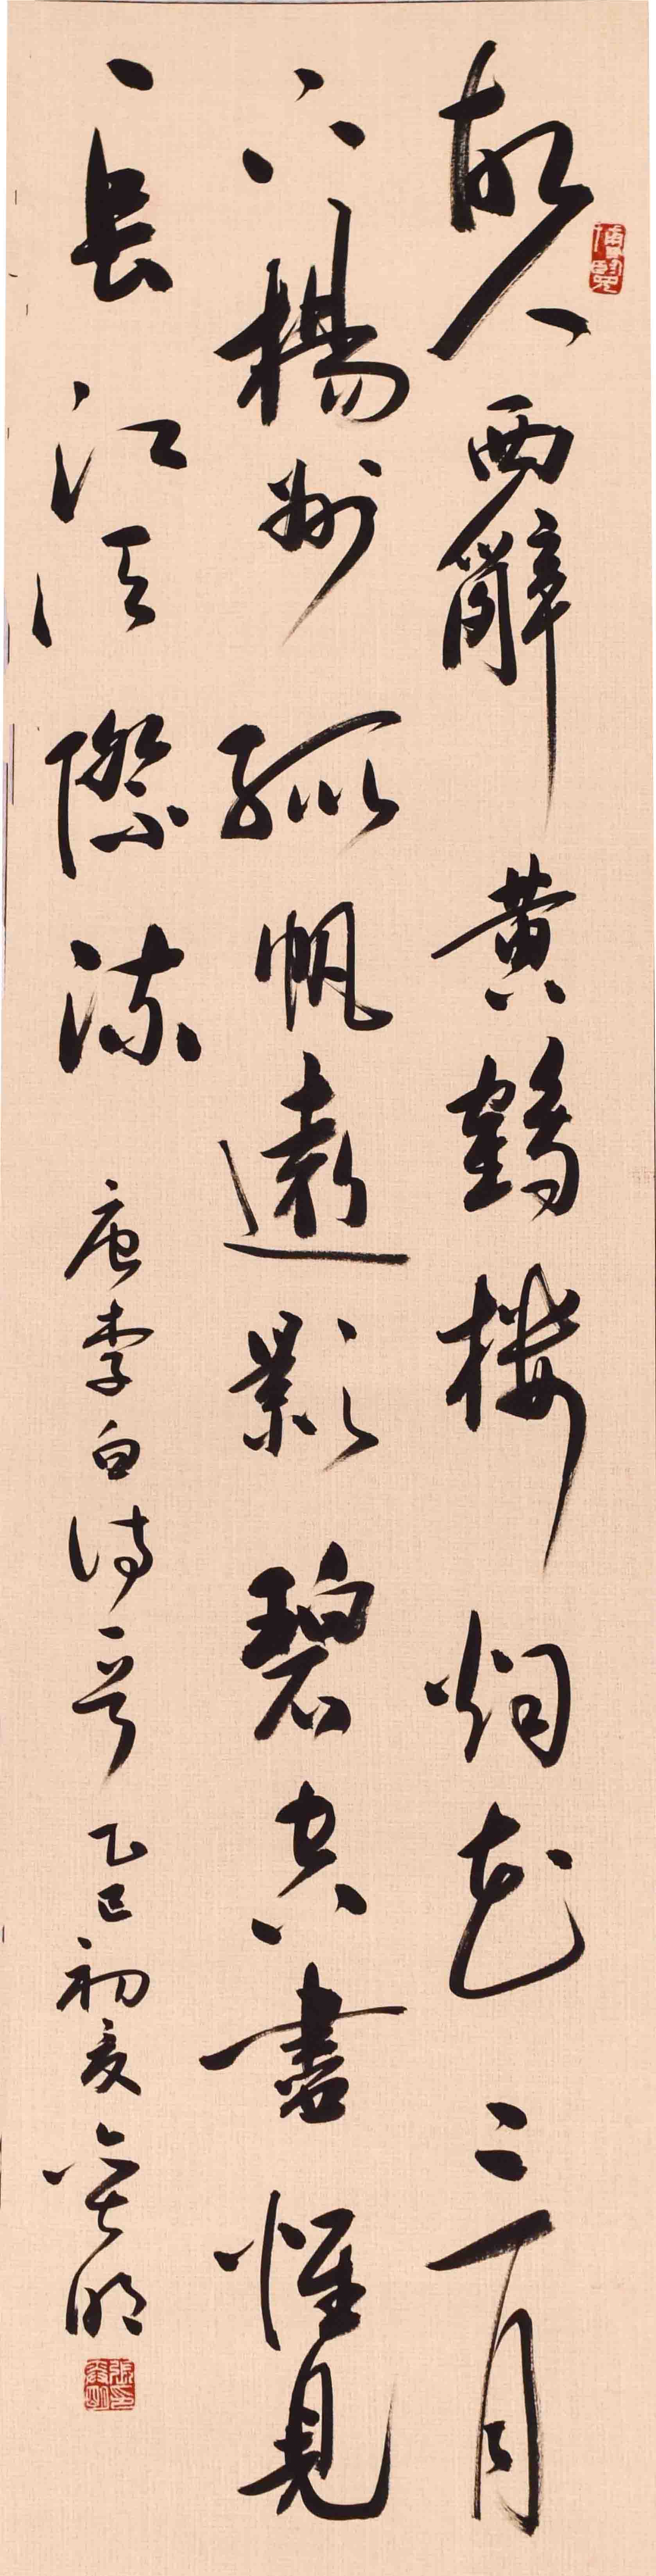 故人西辭黄鶴樓烟花三月
下楊州孤帆遠影碧空盡惟見
長江天際流 唐李白詩一首 乙巳初夏 明